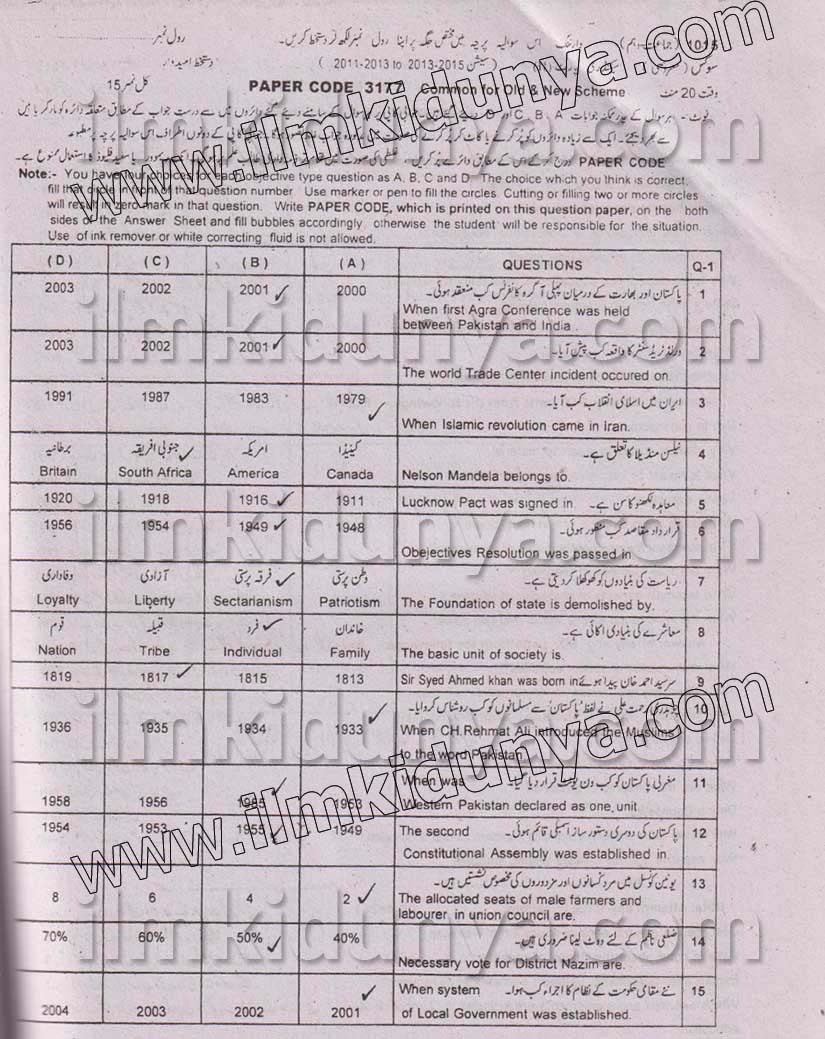 1015
رول نمبر
اس سوالیہ پرچہ میں مختص جگہ پر اپنا رول نمبر لکھ کر دستخط کریں۔
( 2011-2013 to 2013-2015 سیشن )
وقت 20 منٹ
PAPER CODE 3177 Common for Old & New Scheme
کل نمبر 15
PAPER CODE
Note:- You have four choices for each objective type question as A, B, C and D. The choice which you think is correct,
fill the circle in front of that question number. Use marker or pen to fill the circles. Cutting or filling two or more circles
will result in zero mark in that question. Write PAPER CODE, which is printed on this question paper, on the both
sides of the Answer Sheet and fill bubbles accordingly, otherwise the student will be responsible for the situation.
Use of ink remover or white correcting fluid is not allowed.
( D ) ( C ) ( B ) ( A ) QUESTIONS Q-1
پاکستان اور بھارت کے درمیان پہلی آگرہ کانفرنس کب منعقد ہوئی۔ 1
2003 2002 2001 2000
When first Agra Conference was held
between Pakistan and India .
ورلڈ ٹریڈ سنٹر کا واقعہ کب پیش آیا۔ 2
2003 2002 2001 2000
The world Trade Center incident occured on.
ایران میں اسلامی انقلاب کب آیا۔ 3
1991 1987 1983 1979
When Islamic revolution came in Iran.
نیلسن منڈیلا کا تعلق ہے۔ 4
برطانیہ جنوبی افریقہ امریکہ کینیڈا
Britain South Africa America Canada Nelson Mandela belongs to.
1920 1918 1916 1911 Lucknow Pact was signed in. معاہدہ لکھنو کا سن ہے۔ 5
1956 1954 1949 1948 قرارداد مقاصد کب منظور ہوئی۔ 6
Obejectives Resolution was passed in
ریاست کی بنیادوں کو کھوکھلا کر دیتی ہے۔ 7
وفاداری آزادی فرقہ پرستی وطن پرستی
Loyalty Liberty Sectarianism Patriotism The Foundation of state is demolished by.
معاشرے کی بنیادی اکائی ہے۔ 8
قوم قبیلہ فرد خاندان
Nation Tribe Individual Family The basic unit of society is.
1819 1817 1815 1813 Sir Syed Ahmed khan was born in سر سید احمد خان پیدا ہوئے 9
چوہدری رحمت علی نے لفظ پاکستان سے مسلمانوں کو کب روشناس کروایا۔ 10
1936 1935 1934 1933 When CH.Rehmat Ali introduced the Muslims
to the word Pakistan.
When was مغربی پاکستان کو کب ون یونٹ قرار دیا گیا۔ 11
1958 1956 1955 1953 Western Pakistan declared as one unit.
1954 1953 1955 1949 The second پاکستان کی دوسری دستور ساز اسمبلی قائم ہوئی۔ 12
Constitutional Assembly was established in.
یونین کونسل میں مرد کسانوں اور مزدوروں کی مخصوص نشستیں ہیں۔ 13
8 6 4 2 The allocated seats of male farmers and
labourer in union council are.
70% 60% 50% 40% ضلعی ناظم کے لئے ووٹ لینا ضروری ہیں۔ 14
Necessary vote for District Nazim are.
When system نئے مقامی حکومت کے نظام کا اجراء کب ہوا۔ 15
2004 2003 2002 2001 of Local Government was established.
www.ilmkidunya.com
www.ilmkidunya.com
ilmkidunya.com
ilmkidunya.com
ilmkidunya.com
ilmkidunya.com
ilmkidunya.com